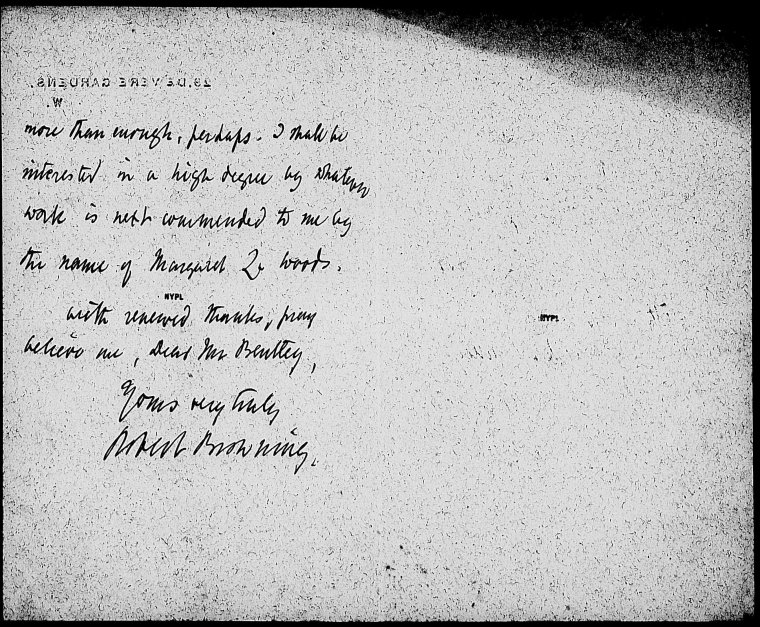 29, DE VERE GARDENS,
W.
more than enough, perhaps. I shall be
interested in a high degree by whatever
work is next commended to me by
the name of Margaret L. Woods.
NYPL
With renewed thanks, pray
NYPL
believe me, Dear Mr Bentley,
Yours very truly
Robert Browning.